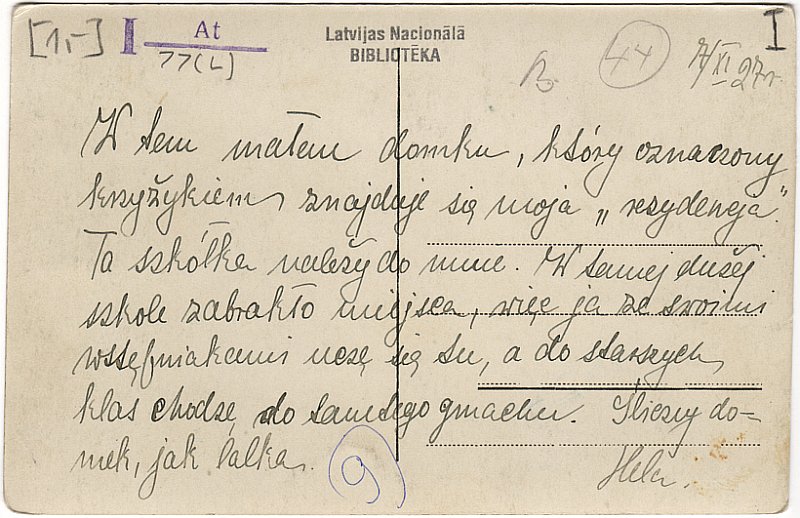 [1,-] I At
77(L)
Latvijas Nacionālā
BIBLIOTĒKA
B.
44
7/XI 27 r.
I
W tem małem domku, który oznaczony
krzyżykiem znajduje się moja „rezydencja".
Ta szkółka należy do mnie. W tamej dużej
szkole zabrakło miejsca, więc ja ze swoimi
wstępniakami uczę się tu, a do starszych
klas chodzę do tamtego gmachu. Śliczny do-
mek, jak lalka.
Hela.
9